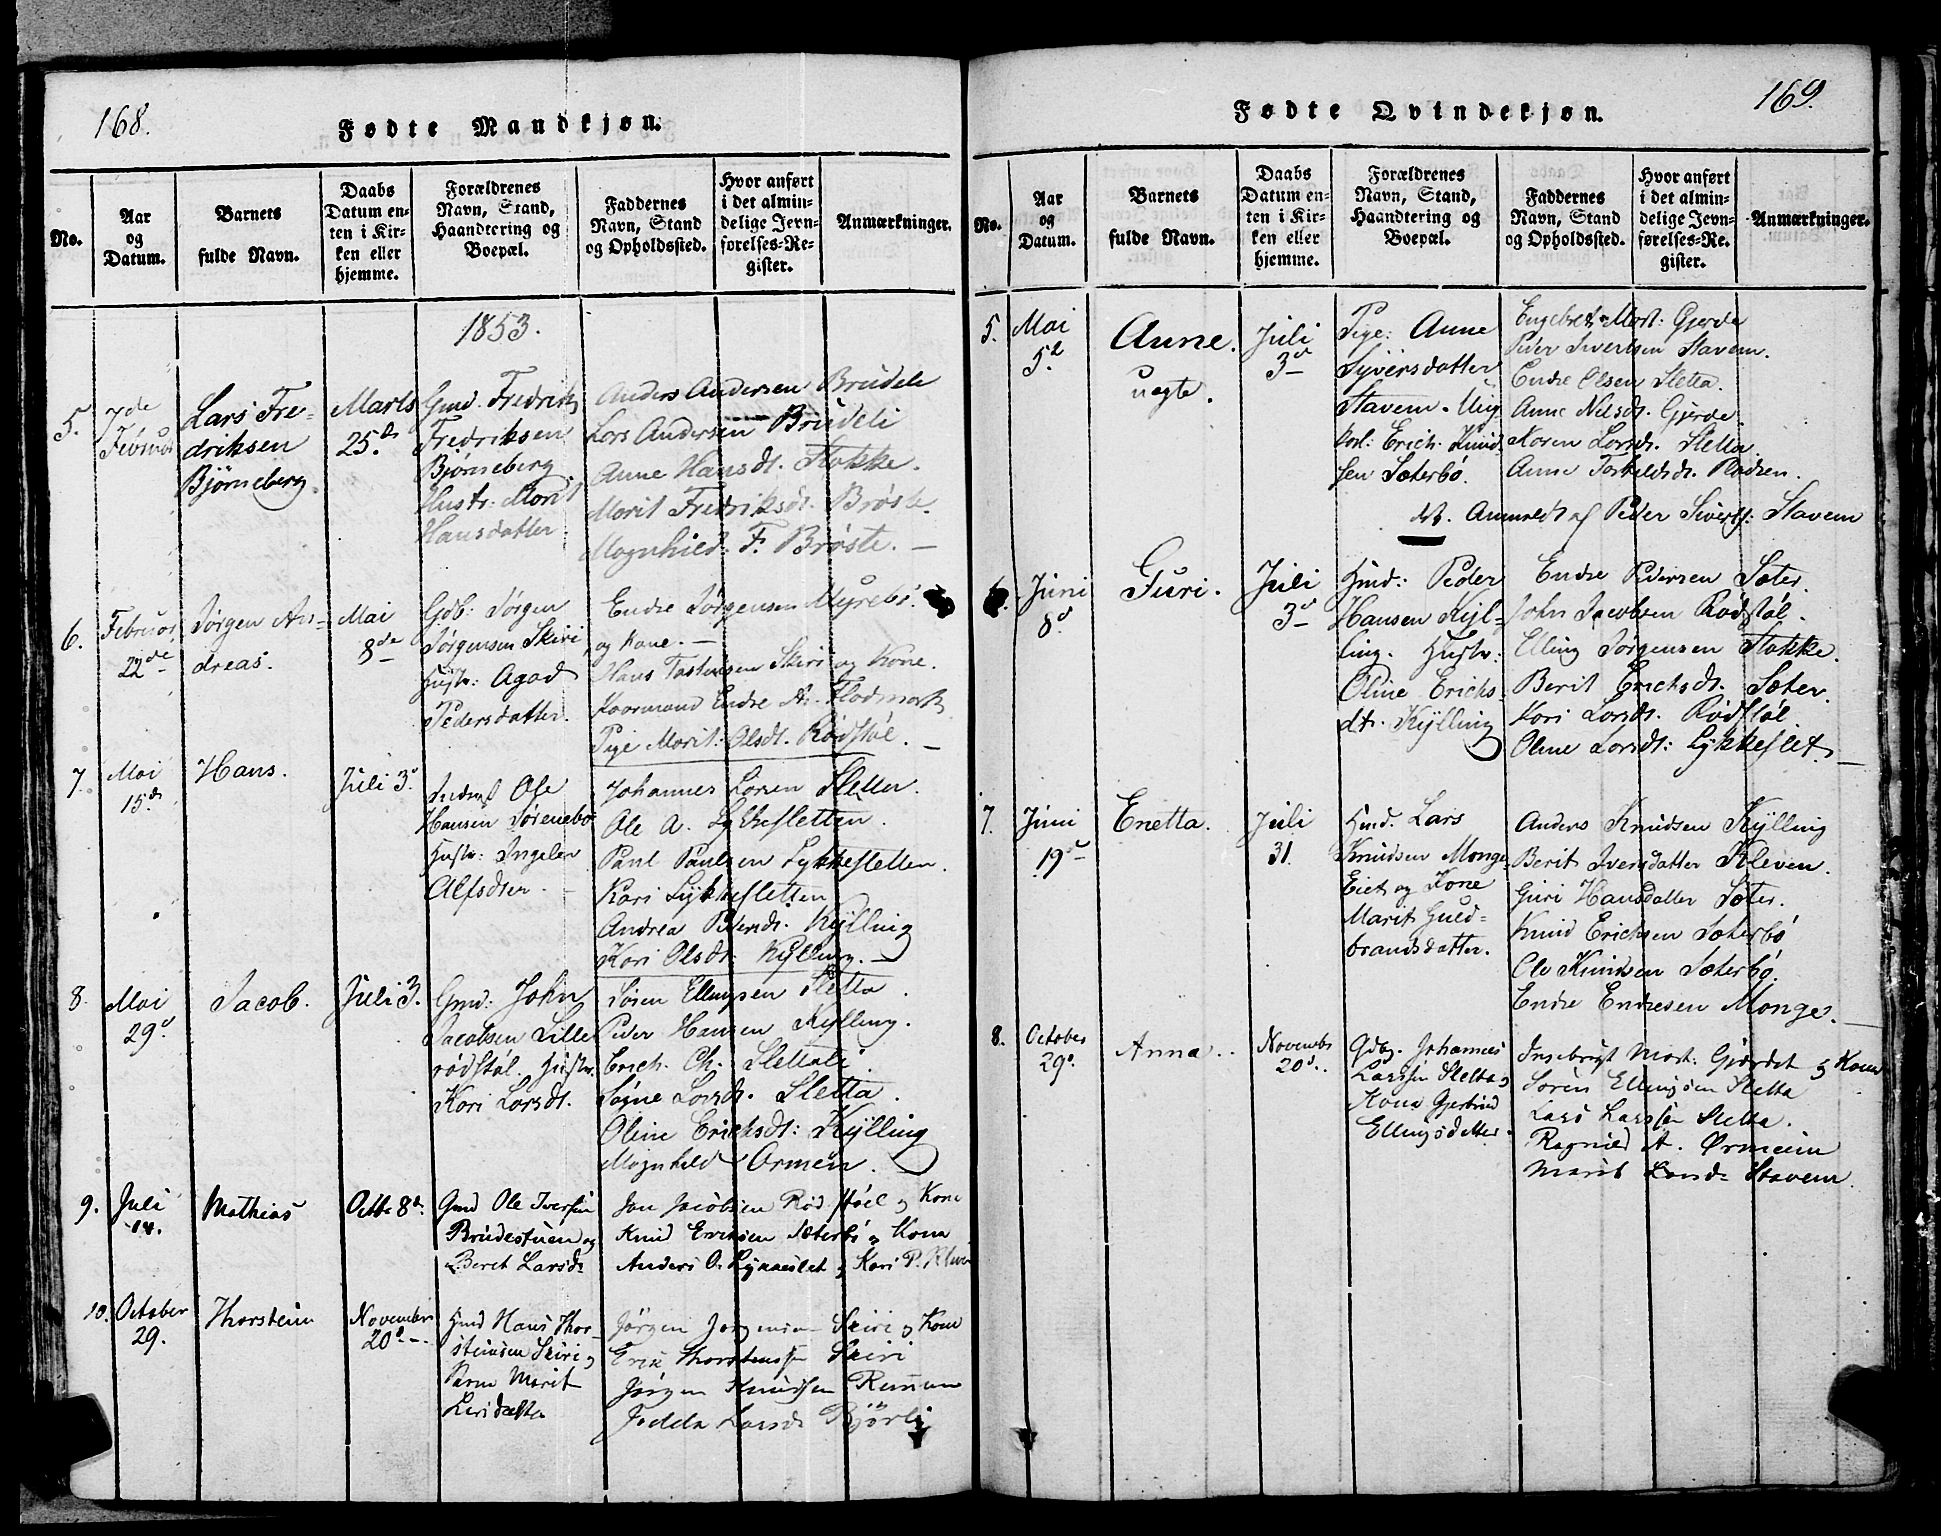 168.
Fødte Mandkjøn.
No.
Aar
og
Datum.
Barnets
fulde Navn.
Daabs
Datum en-
ten i Kir-
ken eller
hjemme.
Forældrenes
Navn, Stand,
Haandtering og
Boepæl.
Faddernes
Navn, Stand
og Opholdssted.
Hvor anført
i det almin-
delige Jevn-
førelses-Re-
gister.
Anmærkninger.
1853.
5.
7de
Februar
Lars Fre-
driksen
Bjørneberg.
Marts
25de
Gmd. Fredrik
Fredriksen
Bjørneberg
Hustr: Morit
Hansdatter.
Anders Andersen Brudeli
Lars Andersen Brudeli
Anne Hansdt. Stokke.
Morit Fredriksdt. Brøste.
Magnhild F. Brøste. —
6.
Februar
22de
Jørgen An-
dreas.
Mai
8de
Gdb: Jørgen
Jørgensen Skiri
Hustr: Agad
Pedersdatter.
Endre Jørgensen Myrebø.
og Kone. —
Hans Skiri og Kone.
Endre A. Flodmark
Pige Morit Olsdt. Rødstøl. —
7.
Mai
15de
Hans.
Juli 3d
Ole
Hansen Sørenebø
Hustr: Ingeler
Alfsdtr. —
Johannes Larsen Sletta.
Ole A. Lykkesletten.
Paul Paulsen Lykkesletten.
Kari Lykkesletten
Andrea Pedersdt. Kylling
Kari Olsdt: Kylling. —
8.
Mai
29d
Jacob.
Juli 3.
Gmd: John
Jacobsen Lille
rødstøl. Hustr.
Kari Larsdt.
Søren Ellingsen Sletta.
Peder Hansen Kylling.
Erich Ch. Slettali.
Søgne Larsdt. Sletta.
Oline Erichsdt: Kylling
Magnhild Ormen.
9.
Juli
14.
Mathias
Octbr 8de
Gmd Ole Iversen
Brudestuen og
Berit Larsdt
Jon Jacobsen Rødstøel og Kone
Knud Eriksen Sæterbø og Kone
Anders O. Lykkeslet og Kari P. Kleve
10.
October
29.
Thorstein
November
20d
Hmd Hans Thor-
steinsen Skiri og
Kone Marit
Larsdatter
Jørgen Jørgensen Skiri og Kone
Erik Thorstensen Skiri
Jørgen Knudsen Remmem
Jodda Larsdt Bjørli
169.
Fødte Qvindekjøn.
No.
Aar
og
Datum.
Barnets
fulde Navn.
Daabs
Datum en-
ten i Kir-
ken eller
hjemme.
Forældrenes
Navn, Stand,
Haandtering og
Boepæl.
Faddernes
Navn, Stand
og Opholdssted.
Hvor anført
i det almin-
delige Jevn-
førelses-Re-
gister.
Anmærkninger.
5.
Mai
5d
Anne.
uægte.
Juli
3d
Pige: Anne
Syversdatter
Stavem. Ung
karl: Erich: Knud-
sen Sæterbø.
Engebret Mort: Gjerde
Peder Sivertsen Stavem.
Endre Olsen Sletta.
Anne Nilsdt. Gjerde.
Karen Larsdt. Sletta.
Anne Torkeldsdt. Flodsen.
dt. Anmeldt af Peder Sivertsn: Stavem
6.
Juni
8d
Guri.
Juli
3d
Hmd: Peder
Hansen Kyl-
ling. Hustr:
Oline Erichs-
dt. Kylling
Endre Pedersen Sæter.
John Jacobsen Rødstøl.
Elling Jørgensen Stokke.
Berit Erichsdt. Sæter.
Kari Larsdt. Rødstøl.
Oline Larsdt: Lykkeslet. —
7.
Juni
19d
Enetta.
Juli
31.
Hmd. Lars
Knudsen Monge
Eiet og Kone
Marit Guld-
brandsdatter.
Anders Knudsen Kylling
Berit Iversdatter Kleven.
Guri Hansdatter Sæter.
Knud Erichsen Sæterbø
Ole Knudsen Sæterbø.
Endre Endresen Monge. —
8.
October
29d
Anna.
Novembr
20d
Gdbg. Johannes
Larssen Sletta og
Kone Gjertrud
Ellingsdatter.
Ingebrigt Mort: Gjærdet og Kone
Søren Ellingsen Sletta
Lars Larssen Sletta.
Ragnild A. Ormeim
Marit Larsdt Stavem.